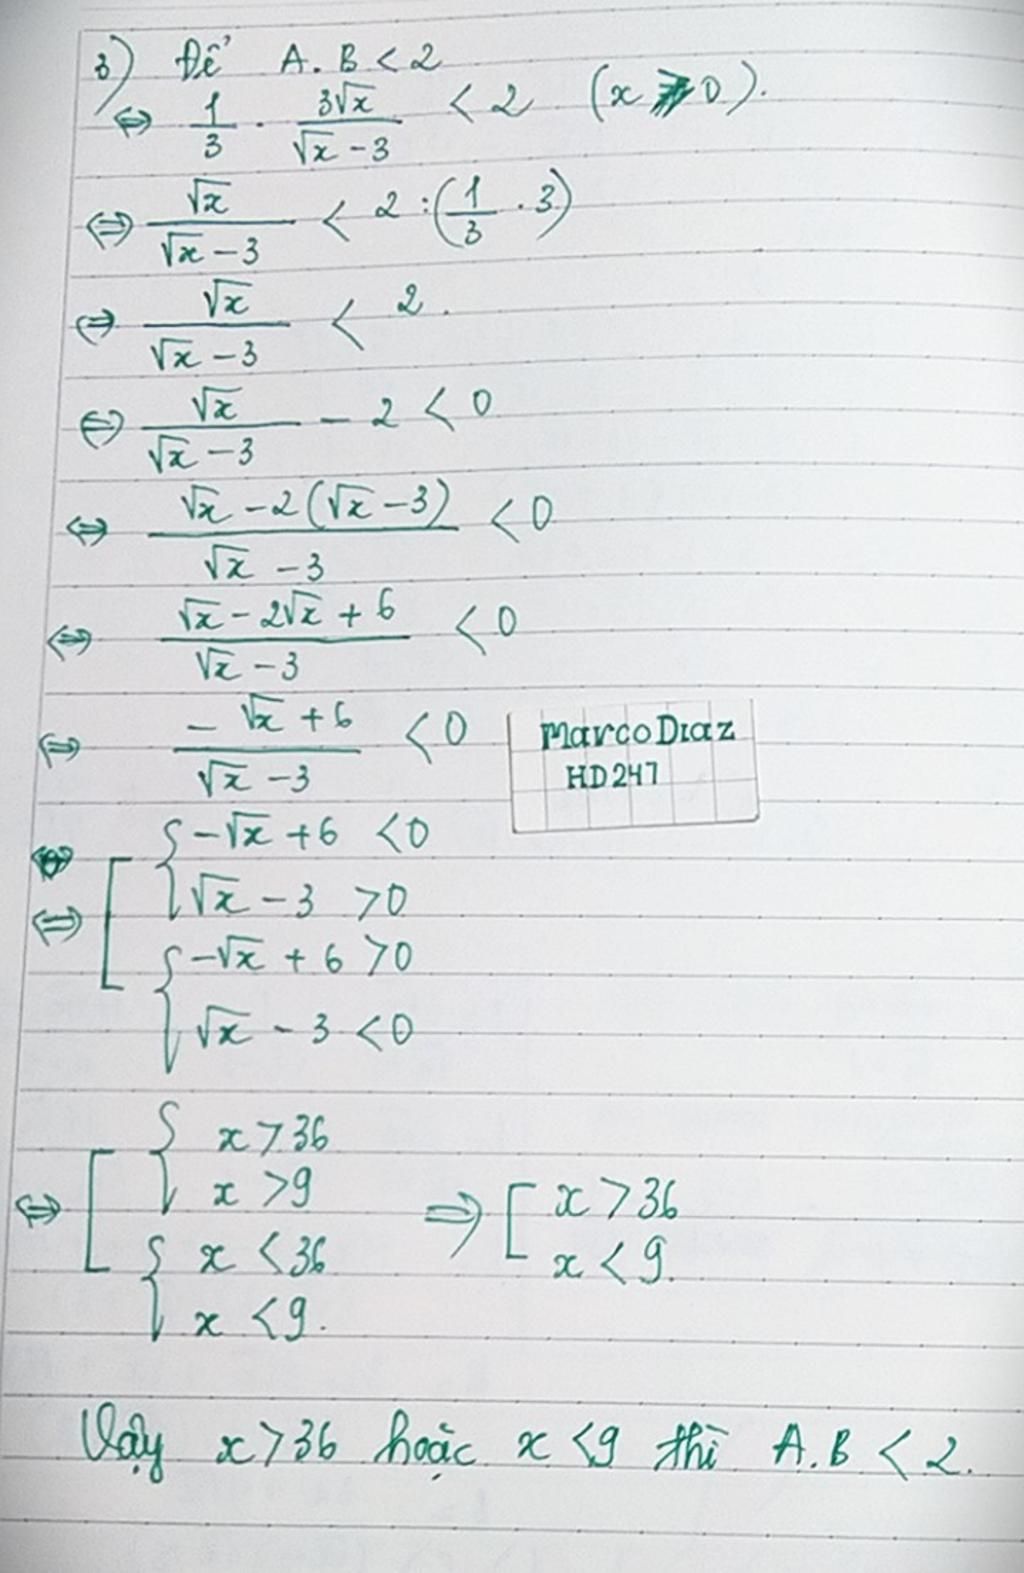 3) Để A.B < 2
⇔ 1/3 . 3√x/(√x - 3) < 2 (x ≥ 0).
⇔ √x/(√x - 3) < 2 : (1/3 . 3)
⇔ √x/(√x - 3) < 2.
⇔ √x/(√x - 3) - 2 < 0
⇔ (√x - 2(√x - 3))/(√x - 3) < 0
⇔ (√x - 2√x + 6)/(√x - 3) < 0
⇔ (-√x + 6)/(√x - 3) < 0
Marco Diaz
HD247
⇔ [ { -√x + 6 < 0
√x - 3 > 0
{ -√x + 6 > 0
√x - 3 < 0
⇔ [ { x > 36
x > 9
{ x < 36
x < 9.
⇒ [ x > 36
x < 9.
Vậy x > 36 hoặc x < 9 thì A.B < 2.